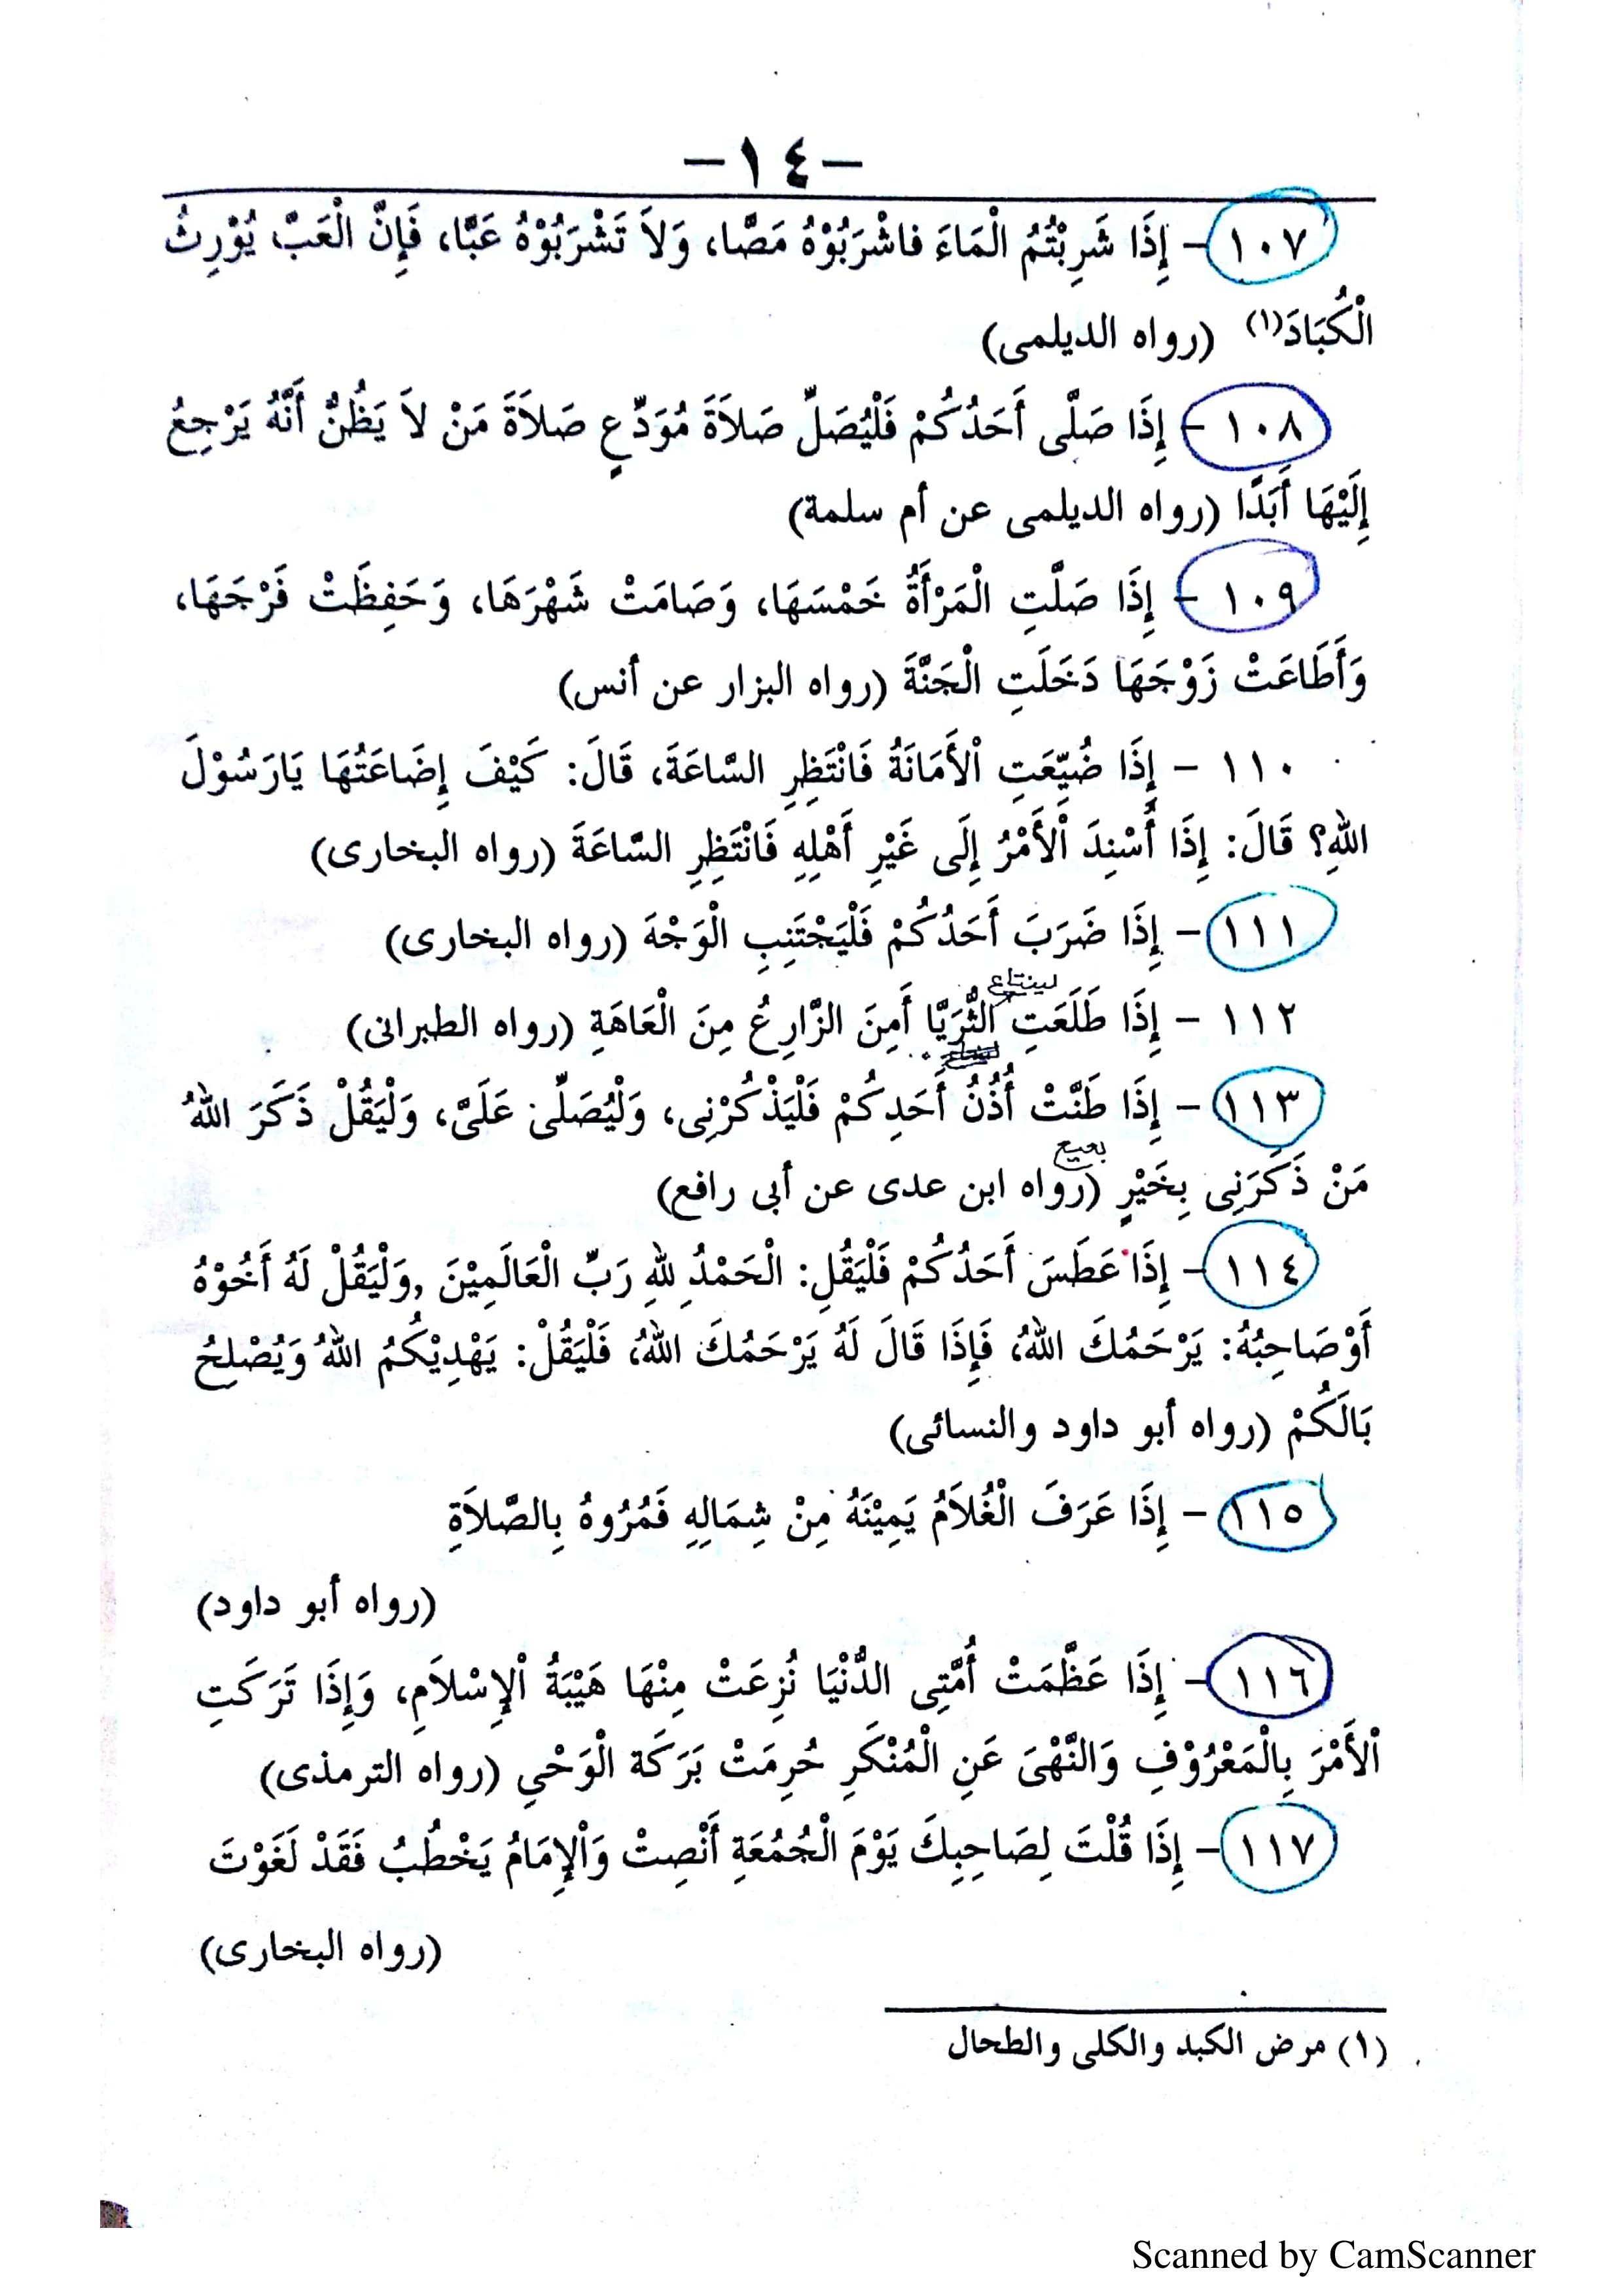 -١٤-
١٠٧ - إِذَا شَرِبْتُمُ الْمَاءَ فاشْرَبُوْهُ مَصًّا، وَلاَ تَشْرَبُوْهُ عَبًّا، فَإِنَّ الْعَبَّ يُوْرِثُ
الْكُبَادَ(١) (رواه الديلمى)
١٠٨ - إِذَا صَلَّى أَحَدُكُمْ فَلْيُصَلِّ صَلاَةَ مُوَدِّعٍ صَلاَةَ مَنْ لاَ يَظُنُّ أَنَّهُ يَرْجِعُ
إِلَيْهَا أَبَدًا (رواه الديلمى عن أم سلمة)
١٠٩ - إِذَا صَلَّتِ الْمَرْأَةُ خَمْسَهَا، وَصَامَتْ شَهْرَهَا، وَحَفِظَتْ فَرْجَهَا،
وَأَطَاعَتْ زَوْجَهَا دَخَلَتِ الْجَنَّةَ (رواه البزار عن أنس)
١١٠ - إِذَا ضُيِّعَتِ اْلأَمَانَةُ فَانْتَظِرِ السَّاعَةَ، قَالَ: كَيْفَ إِضَاعَتُهَا يَارَسُوْلَ
اللهِ؟ قَالَ: إِذَا أُسْنِدَ اْلأَمْرُ إِلَى غَيْرِ أَهْلِهِ فَانْتَظِرِ السَّاعَةَ (رواه البخارى)
١١١ - إِذَا ضَرَبَ أَحَدُكُمْ فَلْيَجْتَنِبِ الْوَجْهَ (رواه البخارى)
لينتاع
١١٢ - إِذَا طَلَعَتِ الثُّرَيَّا أَمِنَ الزَّارِعُ مِنَ الْعَاهَةِ (رواه الطبرانى)
١١٣ - إِذَا طَنَّتْ أُذُنُ أَحَدِكُمْ فَلْيَذْكُرْنِى، وَلْيُصَلِّىْ عَلَىَّ، وَلْيَقُلْ ذَكَرَ اللهُ
مَنْ ذَكَرَنِى بِخَيْرٍ (رواه ابن عدى عن أبى رافع)
١١٤ - إِذَا عَطَسَ أَحَدُكُمْ فَلْيَقُلِ: الْحَمْدُ لِلهِ رَبِّ الْعَالَمِيْنَ ,وَلْيَقُلْ لَهُ أَخُوْهُ
أَوْصَاحِبُهُ: يَرْحَمُكَ اللهُ، فَإِذَا قَالَ لَهُ يَرْحَمُكَ اللهُ، فَلْيَقُلْ: يَهْدِيْكُمُ اللهُ وَيُصْلِحُ
بَالَكُمْ (رواه أبو داود والنسائى)
١١٥ - إِذَا عَرَفَ الْغُلاَمُ يَمِيْنَهُ مِنْ شِمَالِهِ فَمُرُوهُ بِالصَّلاَةِ
(رواه أبو داود)
١١٦ - إِذَا عَظَّمَتْ أُمَّتِى الدُّنْيَا نُزِعَتْ مِنْهَا هَيْبَةُ اْلإِسْلاَمِ، وَإِذَا تَرَكَتِ
اْلأَمْرَ بِالْمَعْرُوْفِ وَالنَّهْىَ عَنِ الْمُنْكَرِ حُرِمَتْ بَرَكَة الْوَحْيِ (رواه الترمذى)
١١٧ - إِذَا قُلْتَ لِصَاحِبِكَ يَوْمَ الْجُمُعَةِ أَنْصِتْ وَاْلإِمَامُ يَخْطُبُ فَقَدْ لَغَوْتَ
(رواه البخارى)
(١) مرض الكبد والكلى والطحال
Scanned by CamScanner